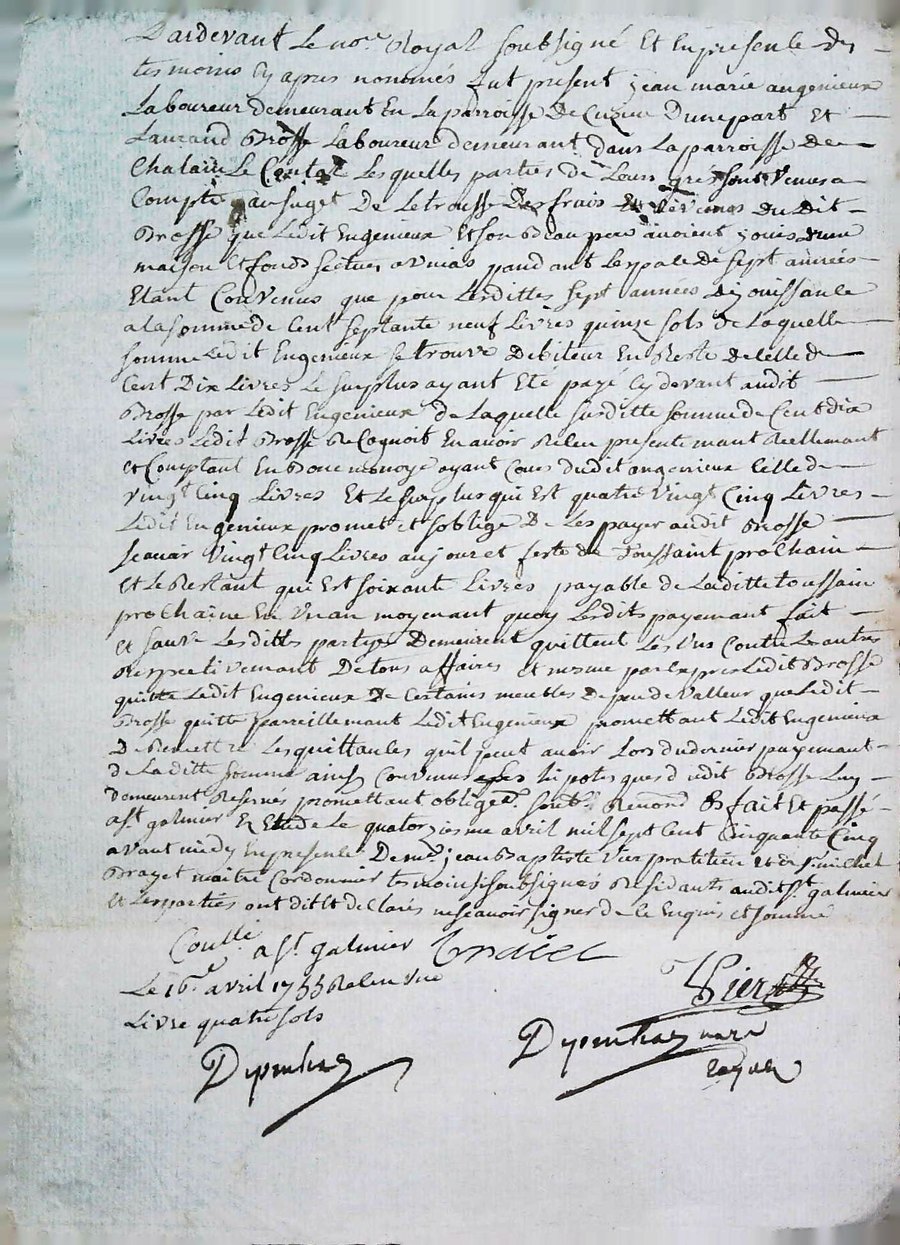 Pardevant Le no.re Royal soubsigné Et En presence des
tesmoins Cy apres nonomés fut present jean marie angenieux
Laboureur demeurant En La parroisse De Cuzieu D'une part Et
Laurand Brosse Laboureur demeurant dans La parroisse de
Chalain Le Contal Les quelles parties de Leurs grés sont Venus a
Compte au suget De Les frais du Dit
Brosse que Ledit Engenieux Et son Beau pere avoient jouis d'une
maison Et fonds scitues a pandant Lespace De sept années
Etant Convenus que pour Lesdittes sept années De jouissance
a la somme de Cent septante neuf Livres quinse sols de Laquelle
somme Ledit Engenieux se trouve Debiteur En Reste de Celle de
Cent Dix Livres Le surplus ayant Eté payé Cy devant audit
Brosse par Ledit Engenieux de Laquelle susditte somme de Cent dix
Livres Ledit Brosse Recognoit En avoir Receu presentemant Reellemant
et Comptant En Bonne monoye ayant Cours dudit angenieux Celle de
vingt Cinq Livres Et Le surplus qui Est quatre vingt Cinq Livres
Ledit Engenieux promet et soblige De Les payer audit Brosse
scavoir vingt Cinq Livres au jour et feste de Toussaint prochain
Et Le Restant qui Est soixante Livres payable de Laditte toussain
prochaine En un an moyenant quoy Lesdits payemant fait
et Lesdittes partys Demeurent quittent Les Uns Contre Les autres
Respectivemant De tous affaires et mesme par Expres Ledit Brosse
quitte Ledit Engenieux De Certains meubles de peu de Valleur que Ledit
Brosse quitte pareillemant Ledit Engenieux promettant Ledit Engenieux
De Remettre Les quittances quil peut avoir Lors du dernier payemant
de Laditte somme ainsy Convenus Les hipoteques dudit Brosse Luy
demeurent Reservés promettant obligé. soub. Renond Et fait Et passé
a St galmier Etude Le quatorziesme avril mil sept Cent Cinquante Cinq
avant midy En presence De me. jean Baptiste Vier pratitien et de
maitre Cordonnier tesmoins soubsignes Residants audit St. galmier
Et Les parties ont dit et declarés ne scavoir signer de Ce Enquis et sommé
Conllé a St. galmier
Le 16e avril 1755 Receu une
Livre quatre sols
Vier